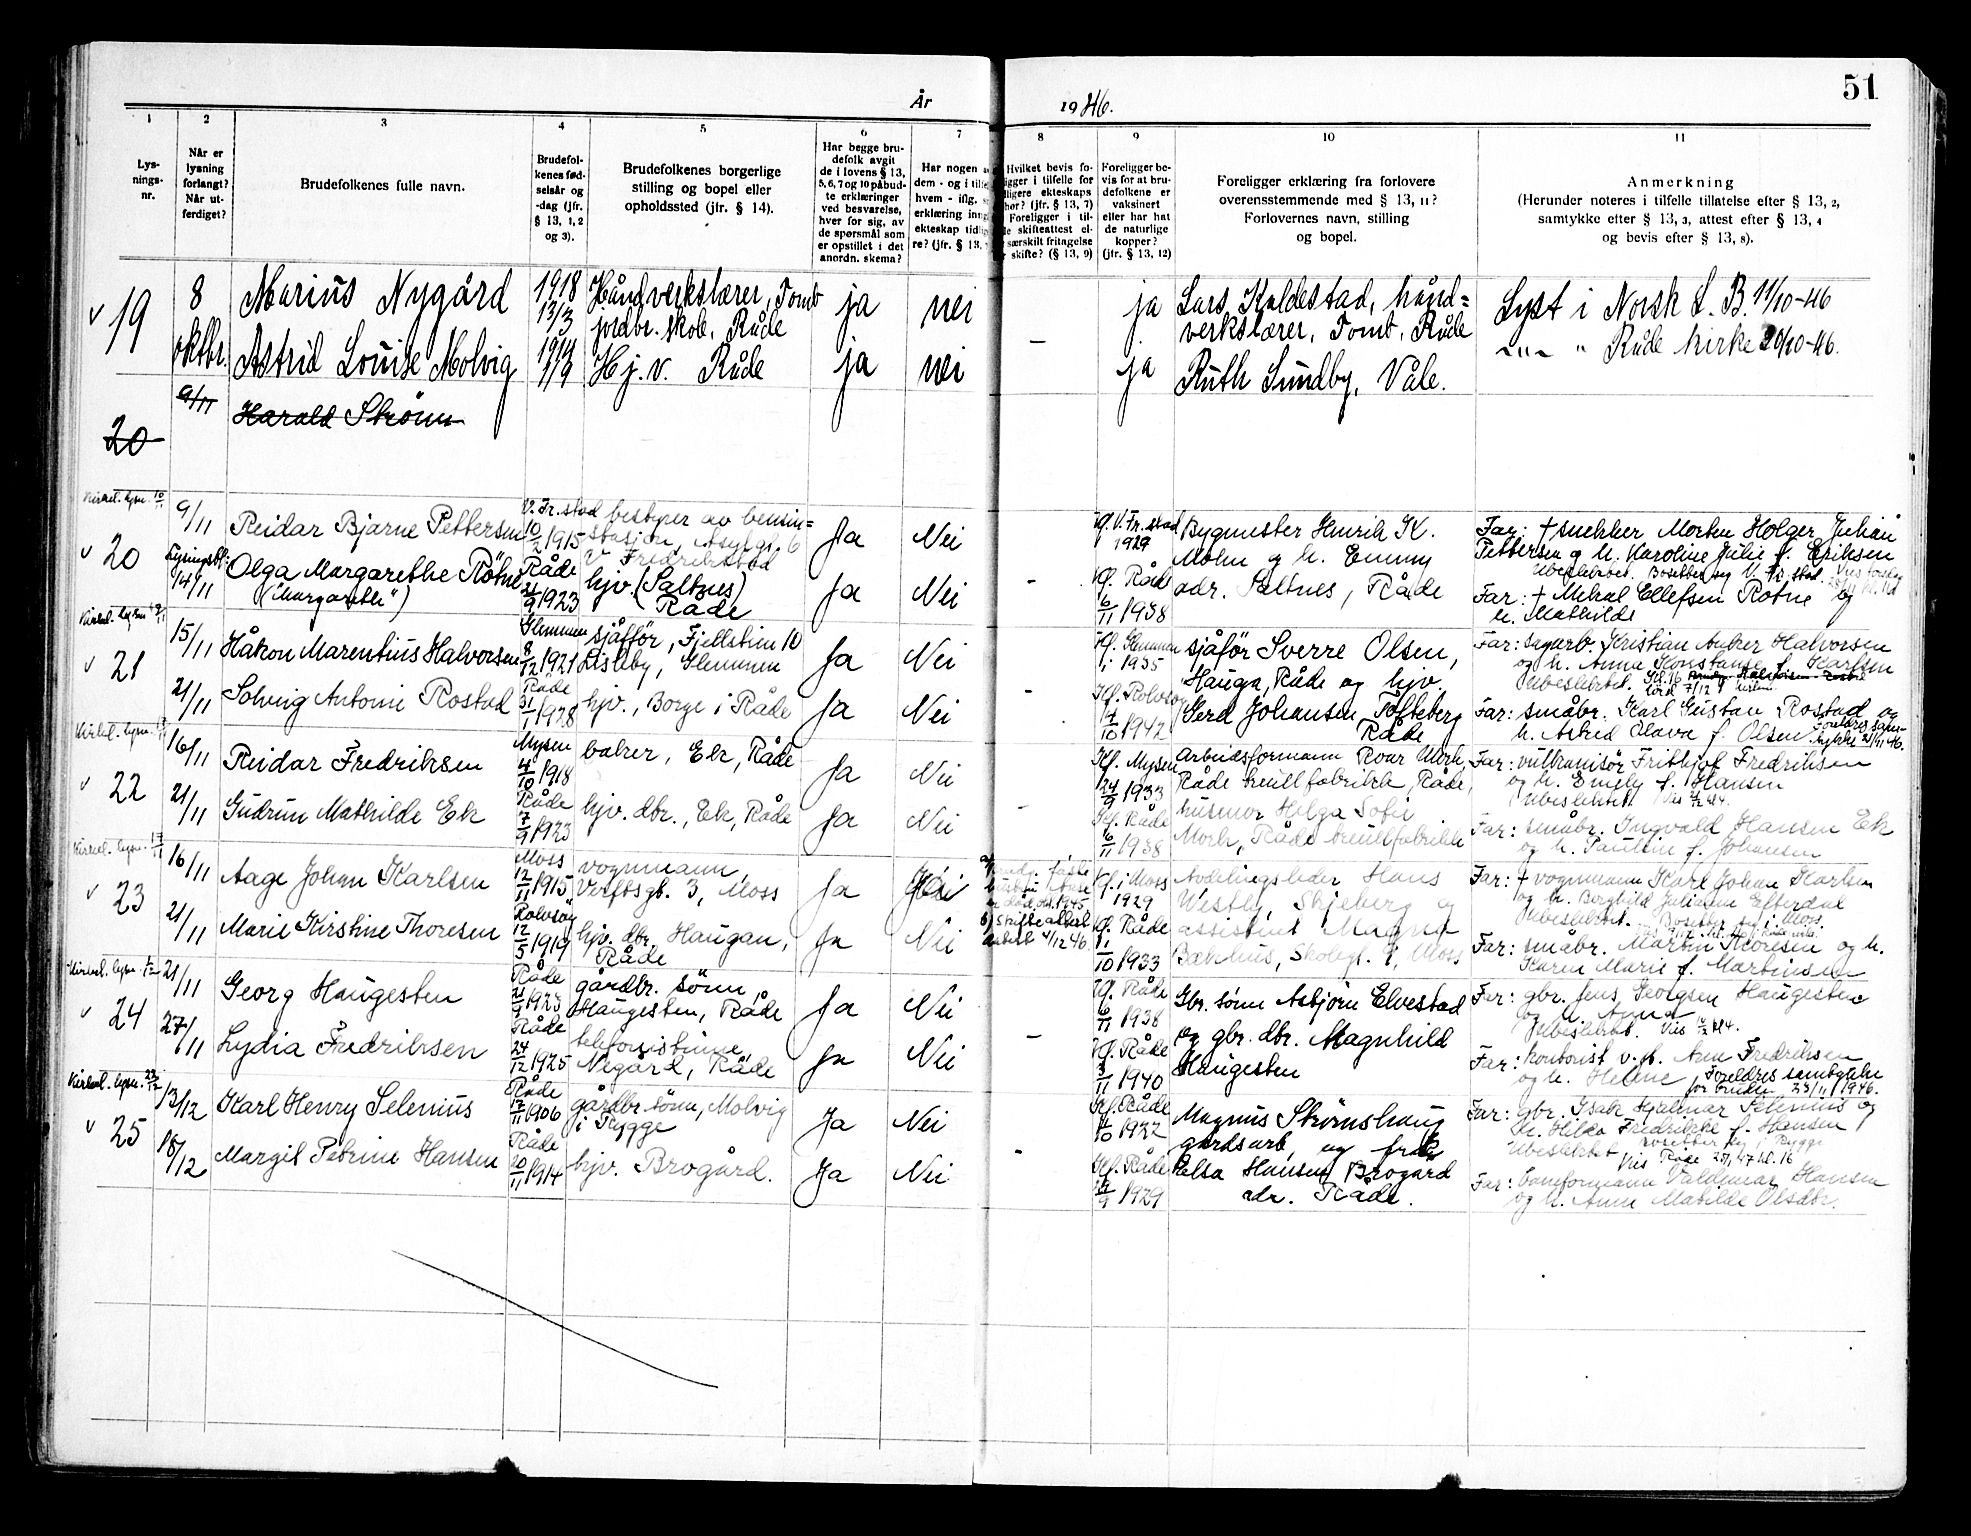 51
År 1946.
1 2 3 4 5 6 7 8 9 10 11
Lys-
nings-
nr.
Når er
lysning
forlangt?
Når ut-
ferdiget?
Brudefolkenes fulle navn.
Brudefol-
kenes fød-
selsår og
-dag (jfr.
§ 13, 1, 2
og 3).
Brudefolkenes borgerlige
stilling og bopel eller
opholdssted (jfr. § 14).
Har begge bru-
defolk avgit
de i lovens § 13,
5, 6, 7 og 10 påbud-
te erklæringer
ved besvarelse,
hver for sig, av
de spørsmål som
er opstillet i det
anordn. skema?
Har nogen a
dem - og i tilfe
hvem - iflg. s
erklæring inng
ekteskap tidlig
re? (jfr. § 13,
Hvilket bevis fo-
ligger i tilfelle for
dligere ekteskaps
phør? (jfr. § 13, 7)
Foreligger i til-
le skifteattest el-
særskilt fritagelse
skifte? (§ 13, 9)
Foreligger be-
vis for at bru-
defolkene er
vaksinert
eller har hat
de naturlige
kopper?
(jfr. § 13, 12)
Foreligger erklæring fra forlovere
overensstemmende med § 13, 11?
Forlovernes navn, stilling
og bopel.
Anmerkning
(Herunder noteres i tilfelle tillatelse efter § 13, 2,
samtykke efter § 13, 3, attest efter § 13, 4
og bevis efter § 13, 8).
v 19
8
oktbr.
Marius Nygård
Astrid Louise Molvig
1918
13/3
Håndverkslærer, Tomb
jordbr. skole, Råde
Hj. v. Råde
ja
ja
nei
nei
–
ja
ja
Lars Kaldestad, hånd=
verkslærer, Tomb, Råde
Ruth Sundby, Våle.
Lyst i Norsk L. B. 11/10-46
" Råde kirke 20/10-46.
20
9/11
Harald Strøm
Kirkel. lysn. 10/11
v 20
9/11
14/11
Reidar Bjarne Pettersen
Olga Margarethe Rötne
("Margarethe")
V. Fr.stad
10/2 1915
Råde
21/9 1923
bestyrer av bensin=
stasjon, Asylgt. 6
V. Fredrikstad
hjv. (Saltnes)
Råde
Ja
Ja
Nei
Nei
–
V. Fr.stad
1929
Råde
6/11 1938
Bygmester Henrik K.
Molin og h. Emmy
adr. Saltnes, Råde
Far: † snekker Morten Holger Julian
Pettersen og h. Karoline Julie f. Eriksen
Ubeslektet. Bosetter seg V. Fr.stad.
Far: † Mikal Ellefsen Rotne og
h. Mathilde
v 21
15/11
21/11
Håkon Marentius Halvorsen
Solveig Antonie Rostad
Glemmen
8/12 1921
Råde
31/1 1928
sjåför, Fjellstien 10
Lisleby, Glemmen
hjv., Borge i Råde
Ja
Ja
Nei
Nei
Glemmen
1935
Rolvsøy
4/10 1942
sjåför Sverre Olsen,
Hauga, Råde og hjv.
Gerd Johansen Tofteberg
Råde
Far: sagarb. Kristian Anker Halvorsen
og h. Anna Konstanse f. Karlsen
Ubeslektet.
Far: småbr. Karl Gustav Rostad og
h. Astrid Olava f. Olsen
v 22
16/11
21/11
Reidar Fredriksen
Gudrun Mathilde Ek
Mysen
4/10 1918
Råde
7/9 1923
baker, Ek, Råde
hjv. dbr., Ek, Råde
Ja
Ja
Nei
Nei
–
Kf. Mysen
24/9 1933
Kf. Råde
6/11 1938
Arbeidsformann Roar Mork
Råde kneullfabrikk, Råde,
husmor Helga Sofie
Mork, Råde
Far: vulkanisör Frithjof Fredriksen
og h. Emely f. Hansen
Ubeslektet
Far: småbr. Ingvald Hansen Ek
og h. Pauline f. Johansen
v 23
16/11
21/11
Aage Johan Karlsen
Marie Kirstine Thoresen
Moss
12/11 1915
Rolvsøy
12/5 1919
vognmann,
Verftsgt. 3, Moss
hjv. dbr., Haugan,
Råde
Ja
Ja
Nei
b) Skifteattest
4/12 46.
Kf. i Moss
1929
Kf. Råde
1/10 1933
Avdelingsleder Hans
Westly, Skjeberg og
assistent Magna
Bækhus, Skolegt. 9, Moss
Far: † vognmann Karl Johan Karlsen
og h. Borghild Juliane Efterdal
Ubeslektet. Bosetter seg i Moss.
Far: småbr. Martin Thoresen og h.
Karen Marie f. Martinsen
v 24
21/11
27/11
Georg Haugesten
Lydia Fredriksen
Råde
1923
Råde
24/12 1925
gårdbr. sönn,
Haugesten, Råde
telefonistinne,
Negård, Råde
Ja
Ja
Nei
Nei
–
Kf. Råde
6/11 1938
Kf. Råde
3/11 1940
Gbr. sönn Asbjörn Elvestad
og gbr. dbr. Magnhild
Haugesten
Far: gbr. Jens Georgsen Haugesten
og h. Anna
Ubeslektet.
Far: kontorist Arne Fredriksen
og h. Helene, Foreldres samtykke
for bruden 23/11 1946.
v 25
13/12
18/12
Karl Henry Selenius
Margit Petrine Hansen
Råde
1906
Råde
20/11 1914
gårdbr. sönn, Molvig
i Rygge
hjv. Brogård.
Ja
Ja
Nei
Nei
-
Kf. Råde
1922
Kf. Råde
1929
Magnus Strömshaug
gårdsarb. og frk.
Elsa Hansen Brogård
adr. Råde.
Far: gbr. Isak Hjalmar Selenius og
h. Hilda Fredrikke f. Hansen
Ubeslektet
Far: baneformann Valdemar Hansen
og h. Anna Matilde Olsdtr.